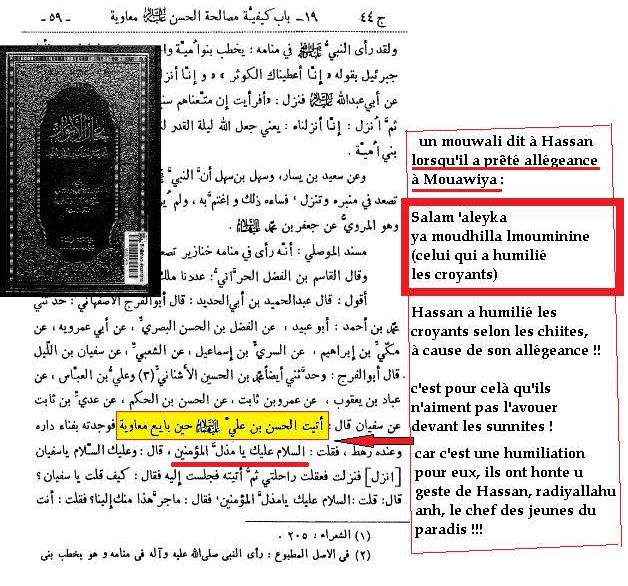 ج ٤٤ ١٩- باب كيفيّة مصالحة الحسن عليه السلام معاوية -٥٩-
ولقد رأى النبيُّ في منامه : يخطب بنو اُميّة
جبرئيل بقوله «إنّا أعطيناك الكوثر» و إنّا أنزل
عن أبي عبدالله عليه السلام فنزل : «أفرأيت إن متّعناهم سن
ثمَّ اُنزل : إنّا أنزلناه : يعني جعل الله ليلة القدر لن
بني اُميّة .
وعن سعيد بن يسار، وسهل بن سهل أنَّ النبيَّ
تصعد في منبره وتنزل ، فساءه ذلك و اغتمَّ به ، ولم ير
وهو المرويُّ عن جعفر بن محمّد عليه السلام .
مسند الموصلي : أنّه رأى في منامه خنازير تصعد
وقال القاسم بن الفضل الحرَّانيُّ: عددنا ملك
أقول : قال عبدالحميد بن أبي الحديد : قال أبوالفرج الاصفهاني : حدّثني
محمّد بن أحمد : أبو عبيد ، عن الفضل بن الحسن البصريِّ ، عن أبي عمرويه ، عن
مكّيِّ بن إبراهيم ، عن السريِّ بن إسماعيل ، عن الشعبيِّ ، عن سفيان بن اللّيل
قال أبوالفرج : وحدَّثني أيضاً محمّد بن الحسين الأشنانيُّ (٣) وعليُّ بن العبّاس ، عن
عباد بن يعقوب ، عن عمرو بن ثابت ، عن الحسن بن الحكم ، عن عديّ بن ثابت
عن سفيان قال : أتيت الحسن بن عليّ عليه السلام حين بايع معاوية فوجدته بفناء داره
وعنده رهط ، فقلت : السلام عليك يا مذلَّ المؤمنين ، قال : وعليك السّلام ياسفيان
[انزل] فنزلت فعقلت راحلتي ثمَّ أتيته فجلست إليه فقال : كيف قلت يا سفيان ؟
قال: قلت: السلام عليك يامذلَّ المؤمنين، فقال : ماجرَّ هذا منك إلينا؟ فقلت : أنت
(١) الشعراء : ٢٠٥ .
(٢) فى الاصل المطبوع : رأى النبى صلى الله عليه وآله فى منامه و هو يخطب بنى
بحار الأنوار
un mouwali dit à Hassan
lorsqu'il a prêté allégeance
à Mouawiya :
Salam 'aleyka
ya moudhilla lmouminine
(celui qui a humilié
les croyants)
Hassan a humilié les
croyants selon les chiites,
à cause de son allégeance !!
c'est pour celà qu'ils
n'aiment pas l'avouer
devant les sunnites !
car c'est une humiliation
pour eux, ils ont honte u
geste de Hassan, radiyallahu
anh, le chef des jeunes du
paradis !!!